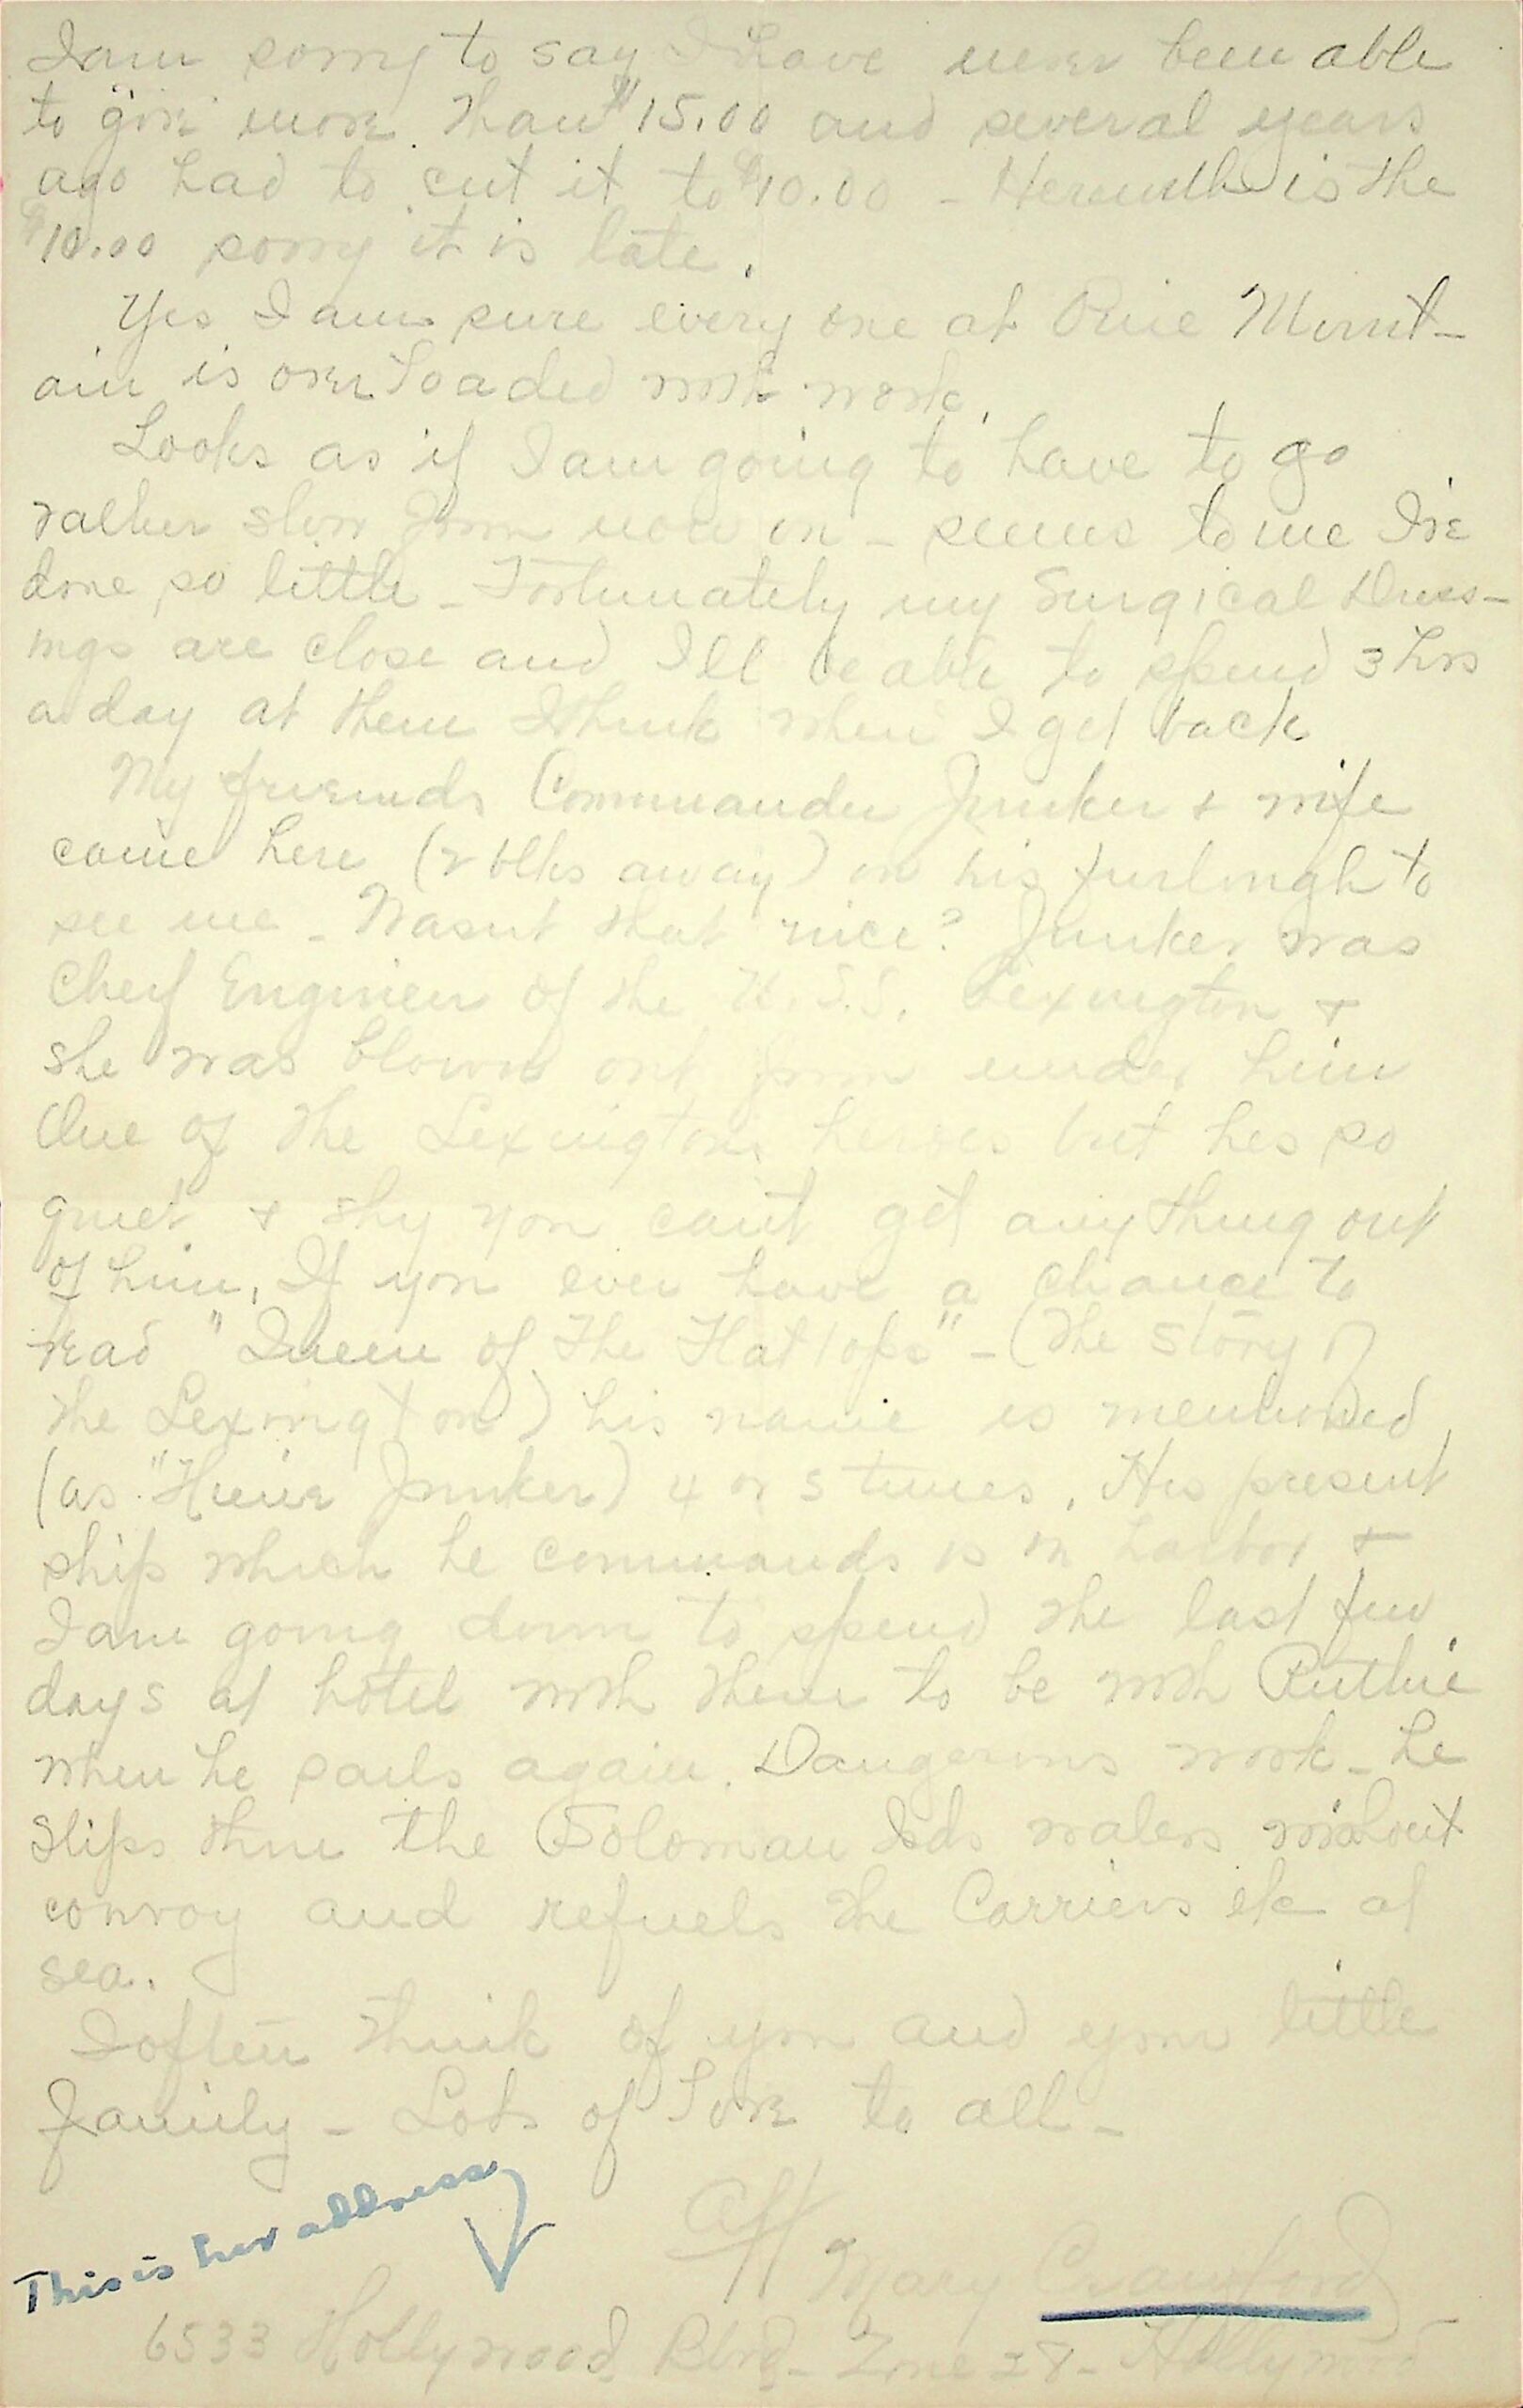 I am sorry to say I have never been able
to give more than $15.00 and several years
ago had to cut it to $10.00 - Herewith is the
$10.00 sorry it is late.
Yes I am sure every one at Pine Mount-
ain is over loaded with work.
Looks as if I am going to have to go
rather slow from now on - seems to me I've
done so little - Fortunately my Surgical Dress-
ings are close and I'll be able to spend 3 hrs
a day at them I think when I get back
My friends Commander Junker & wife
came here (2 blks away) on his furlough to
see me - Wasnt that nice? Junker was
Chief Engineer of the U.S.S. Lexington &
she was blown out from under him
One of the Lexingtons heroes but hes so
quiet & shy you can't get any thing out
of him. If you ever have a chance to
read "Queen of the Flat tops" - (the story of
the Lexington) his name is mentioned
(as "Heinie Junker) 4 or 5 times. His present
ship which he commands is in harbor &
I am going down to spend the last few
days at hotel with them to be with Ruthie
when he sails again. Dangerous work - he
slips thru the Soloman Isds waters without
convoy and refuels the Carriers etc at
sea.
I often think of you and your little
family - Lots of love to all -
Aff
Mary Crawford
This is her address
6533 Hollywood Blvd - Zone 28 - Hollywood